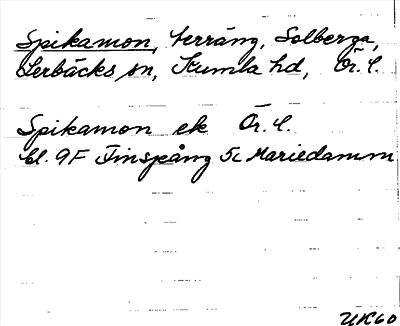 Spikamon, terräng, Solberga,
Lerbäcks sn, Kumla hd, Ör. l.
Spikamon ek Ör. l.
bl. 9F Finspång 5c Mariedamm
UK60